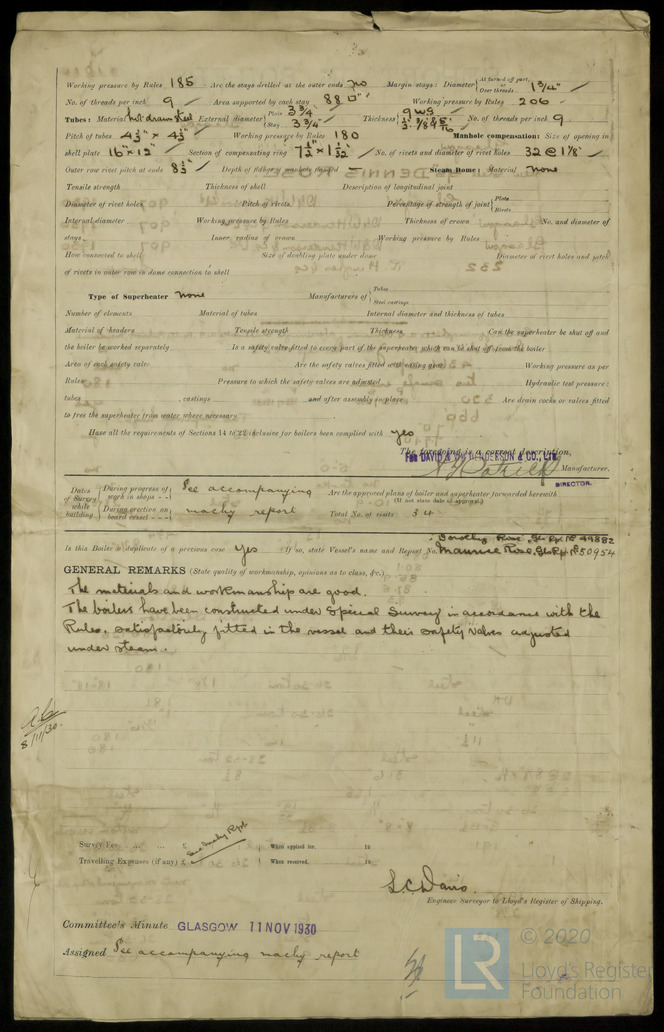 Working pressure by Rules 185 Are the stays drilled at the outer ends no Margin stays: Diameter { At turned off part, or Over threads 1 3/4" ✓
No. of threads per inch 9 Area supported by each stay 88 □" Working pressure by Rules 206
Tubes: Material hot drawn steel External diameter { Plain 3 3/4" Stay 3 3/4" Thickness { 9 W.G. No. of threads per inch 9
Pitch of tubes 4 3/4" × 4 3/4" Working pressure by Rules 180 Manhole compensation: Size of opening in
shell plate 16" × 12" Section of compensating ring 7 1/2" × 1 1/32" No. of rivets and diameter of rivet holes 32 @ 1 1/8"
Outer row rivet pitch at ends 8 3/4" Depth of flange if manhole flanged — Steam Dome: Material none
Tensile strength Thickness of shell Description of longitudinal joint
Diameter of rivet holes Pitch of rivets Percentage of strength of joint { Plate Rivets
Internal diameter Working pressure by Rules Thickness of crown No. and diameter of
stays Inner radius of crown Working pressure by Rules
How connected to shell Size of doubling plate under dome Diameter of rivet holes and pitch
of rivets in outer row in dome connection to shell
Type of Superheater none Manufacturers of { Tubes Steel castings
Number of elements Material of tubes Internal diameter and thickness of tubes
Material of headers Tensile strength Thickness Can the superheater be shut off and
the boiler be worked separately Is a safety valve fitted to every part of the superheater which can be shut off from the boiler
Area of each safety valve Are the safety valves fitted with easing gear Working pressure as per
Rules Pressure to which the safety valves are adjusted Hydraulic test pressure:
tubes castings and after assembly in place Are drain cocks or valves fitted
to free the superheater from water where necessary
Have all the requirements of Sections 14 to 22 inclusive for boilers been complied with yes
The foregoing is a correct description,
For DAVID & W. HENDERSON & CO., LTD.
Manufacturer.
DIRECTOR.
Dates of Survey while building { During progress of work in shops - - See accompanying Are the approved plans of boiler and superheater forwarded herewith
(If not state date of approval.)
During erection on board vessel - - - machy report Total No. of visits 34
Dorothy Rose, Gls Rpt No 49882
Is this Boiler a duplicate of a previous case Yes If so, state Vessel's name and Report No. Maurice Rose, Gls Rpt No 50954
GENERAL REMARKS (State quality of workmanship, opinions as to class, &c.)
The materials and workmanship are good.
The boilers have been constructed under Special Survey in accordance with the
Rules, satisfactorily fitted in the vessel and their safety valves adjusted
under steam.
8/11/30.
Survey Fee ... ... £ See machy Rpt When applied for, 19
Travelling Expenses (if any) £ When received, 19
L.C. Davis.
Engineer Surveyor to Lloyd's Register of Shipping.
Committee's Minute GLASGOW 11 NOV 1930
Assigned See accompanying machy report
LR © 2020
Lloyd's Register
Foundation